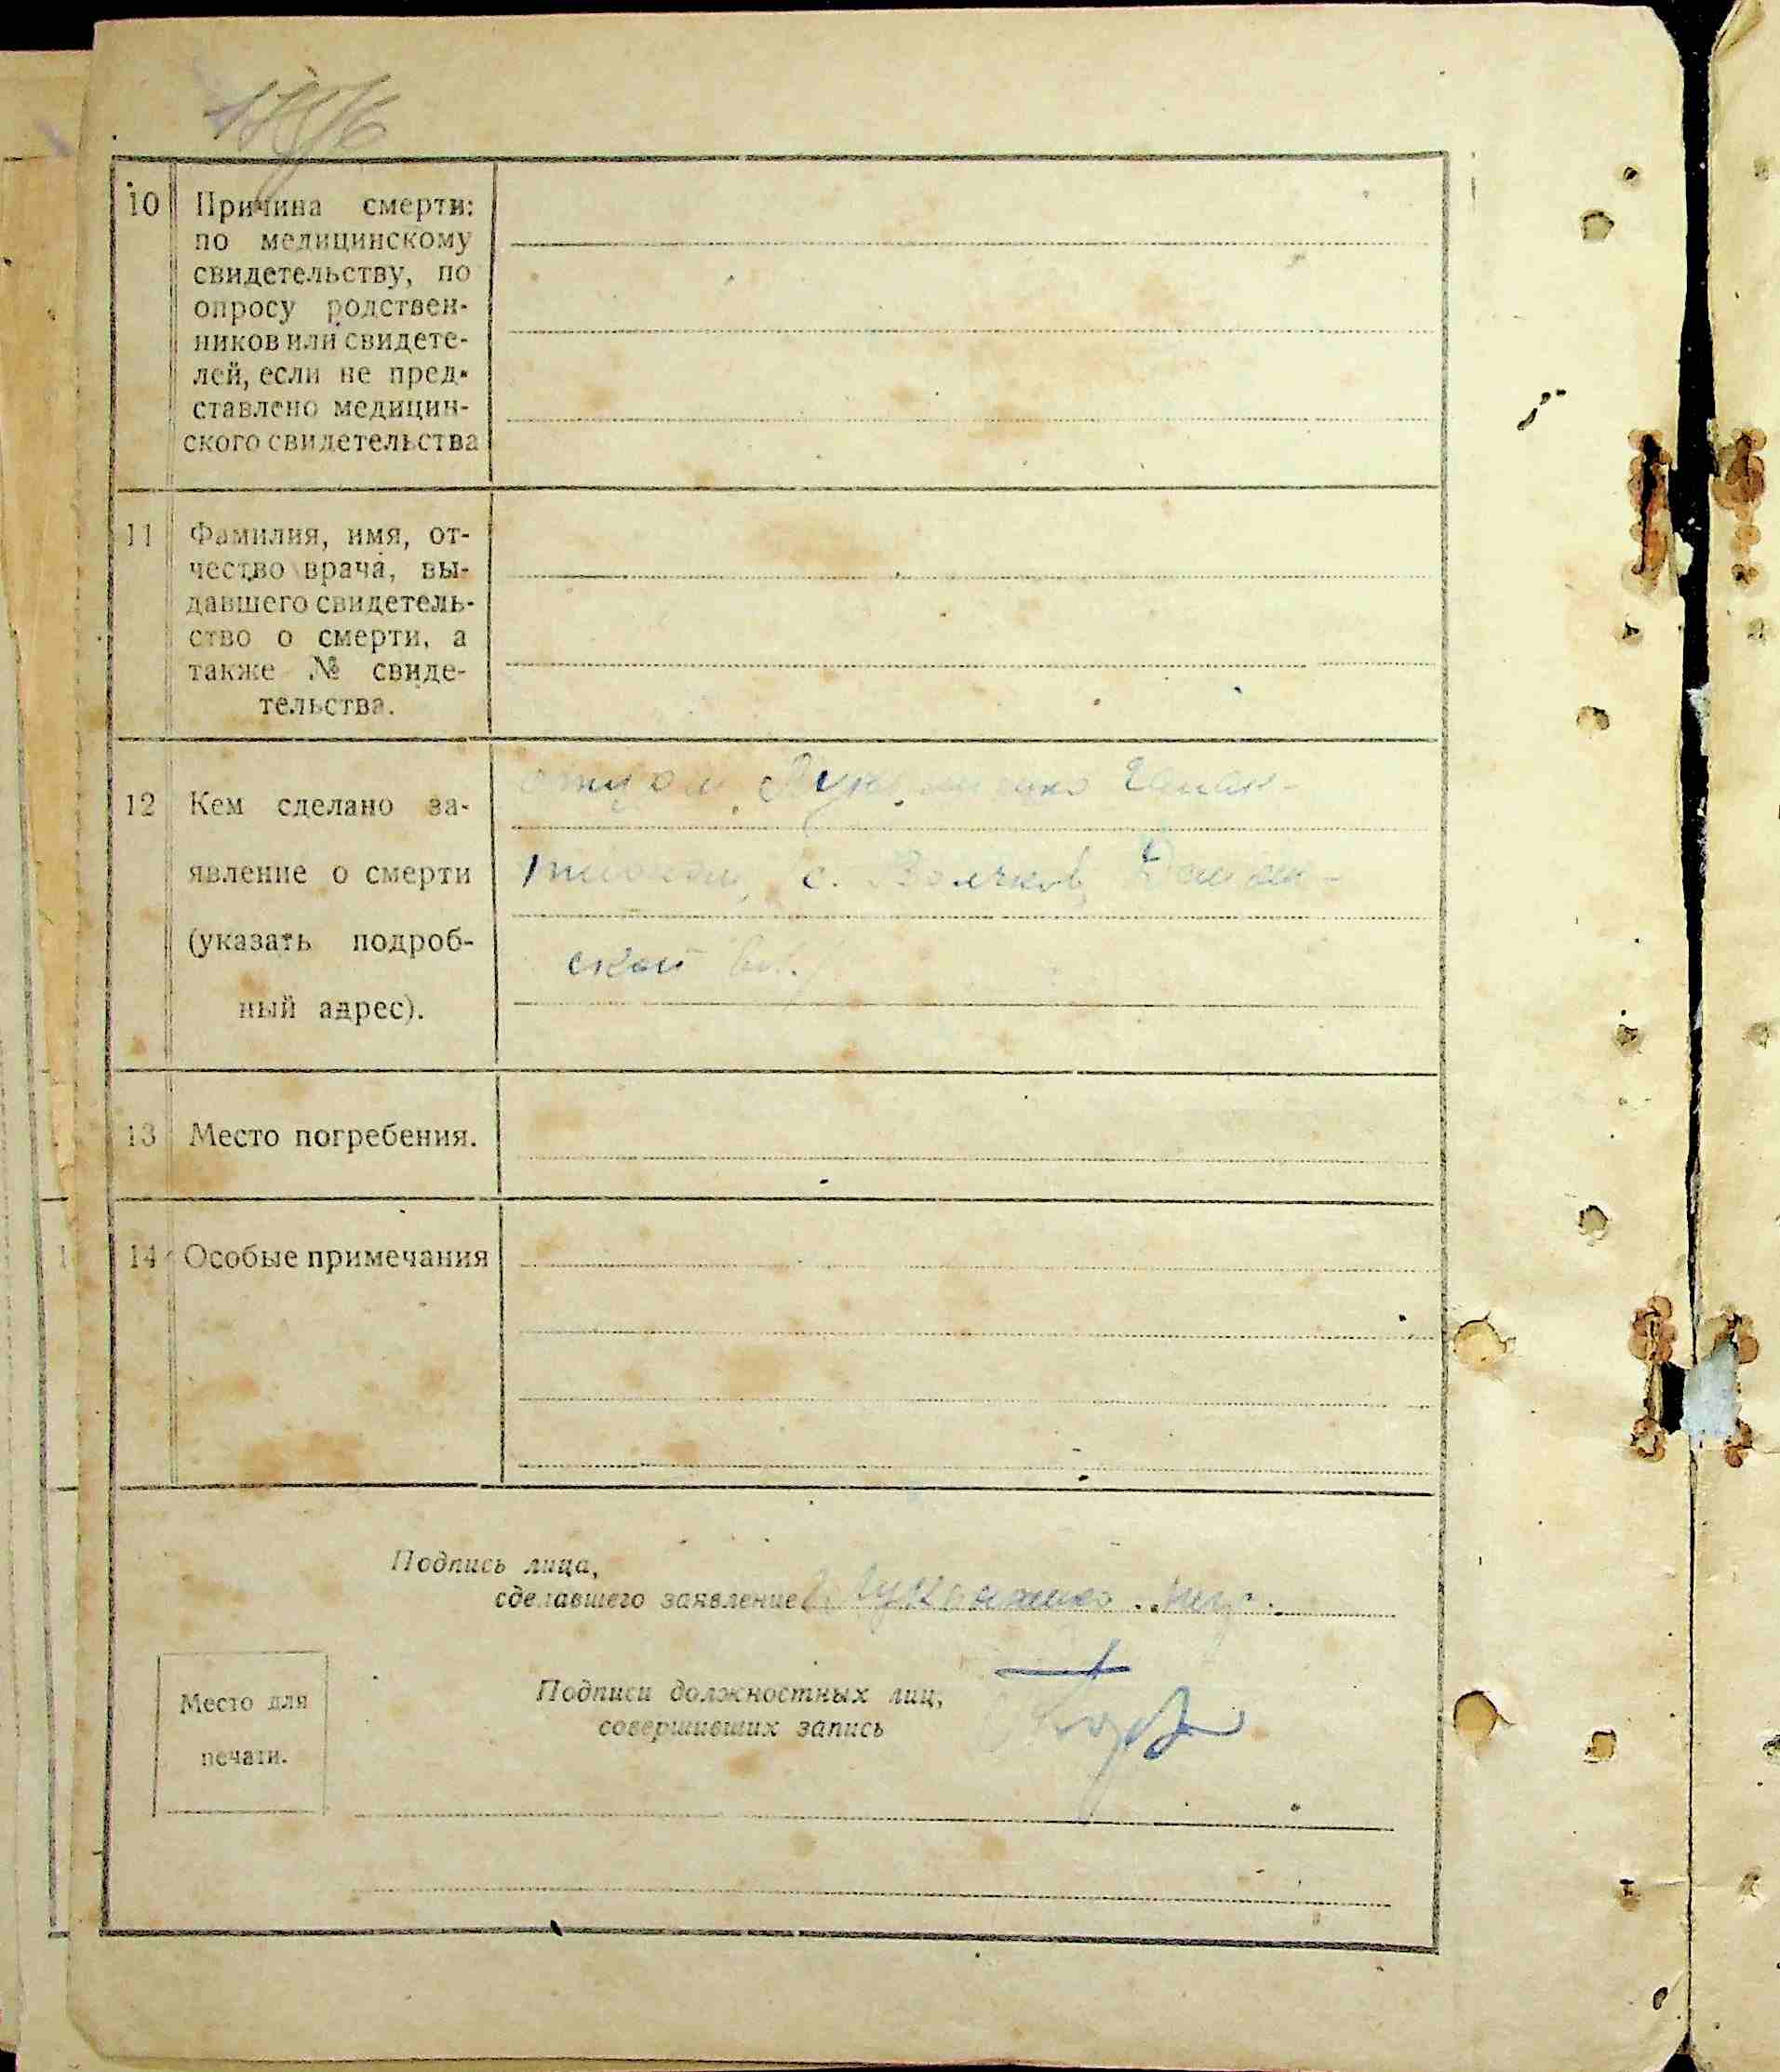 10 Причина смерти:
по медицинскому
свидетельству, по
опросу родствен-
ников или свидете-
лей, если не пред-
ставлено медицин-
ского свидетельства
11 Фамилия, имя, от-
чество врача, вы-
давшего свидетель-
ство о смерти, а
также № свиде-
тельства.
12 Кем сделано за-
явление о смерти
(указать подроб-
ный адрес).
отцом
с. Волчков
ской
13 Место погребения.
14 Особые примечания
Подпись лица,
сделавшего заявление
Подписи должностных лиц,
совершивших запись
Место для
печати.